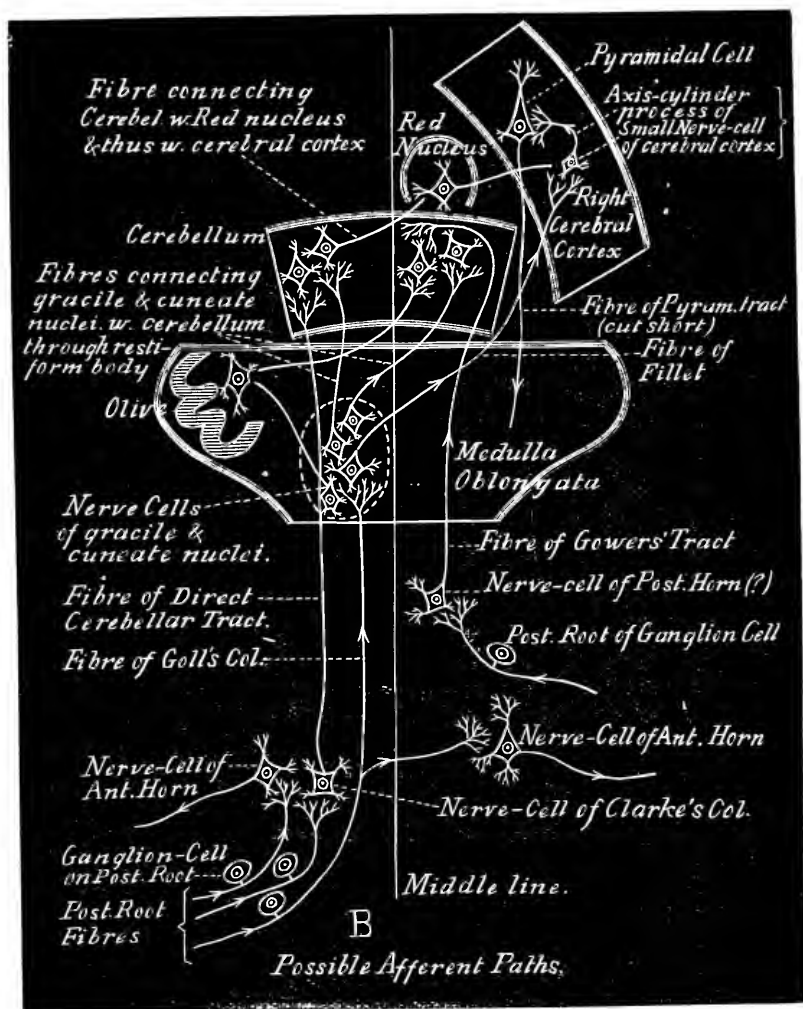 Pyramidal Cell
Fibre connecting
Cerebel. w. Red nucleus
& thus w. cerebral cortex
Red
Nucleus
Axis-cylinder
process of
Small Nerve-cell
of cerebral cortex
Right
Cerebral
Cortex
Cerebellum
Fibres connecting
gracile & cuneate
nuclei. w. cerebellum
through resti-
form body
Fibre of Pyram. tract
(cut short)
Fibre of
Fillet
Olive
Medulla
Oblongata
Nerve Cells
of gracile &
cuneate nuclei.
Fibre of Gowers' Tract
Nerve-cell of Post. Horn (?)
Fibre of Direct
Cerebellar Tract.
Post. Root of Ganglion Cell
Fibre of Goll's Col.
Nerve-Cell of Ant. Horn
Nerve-Cell of
Ant. Horn
Nerve-Cell of Clarke's Col.
Ganglion-Cell
on Post. Root
Post. Root
Fibres
Middle line.
B
Possible Afferent Paths.